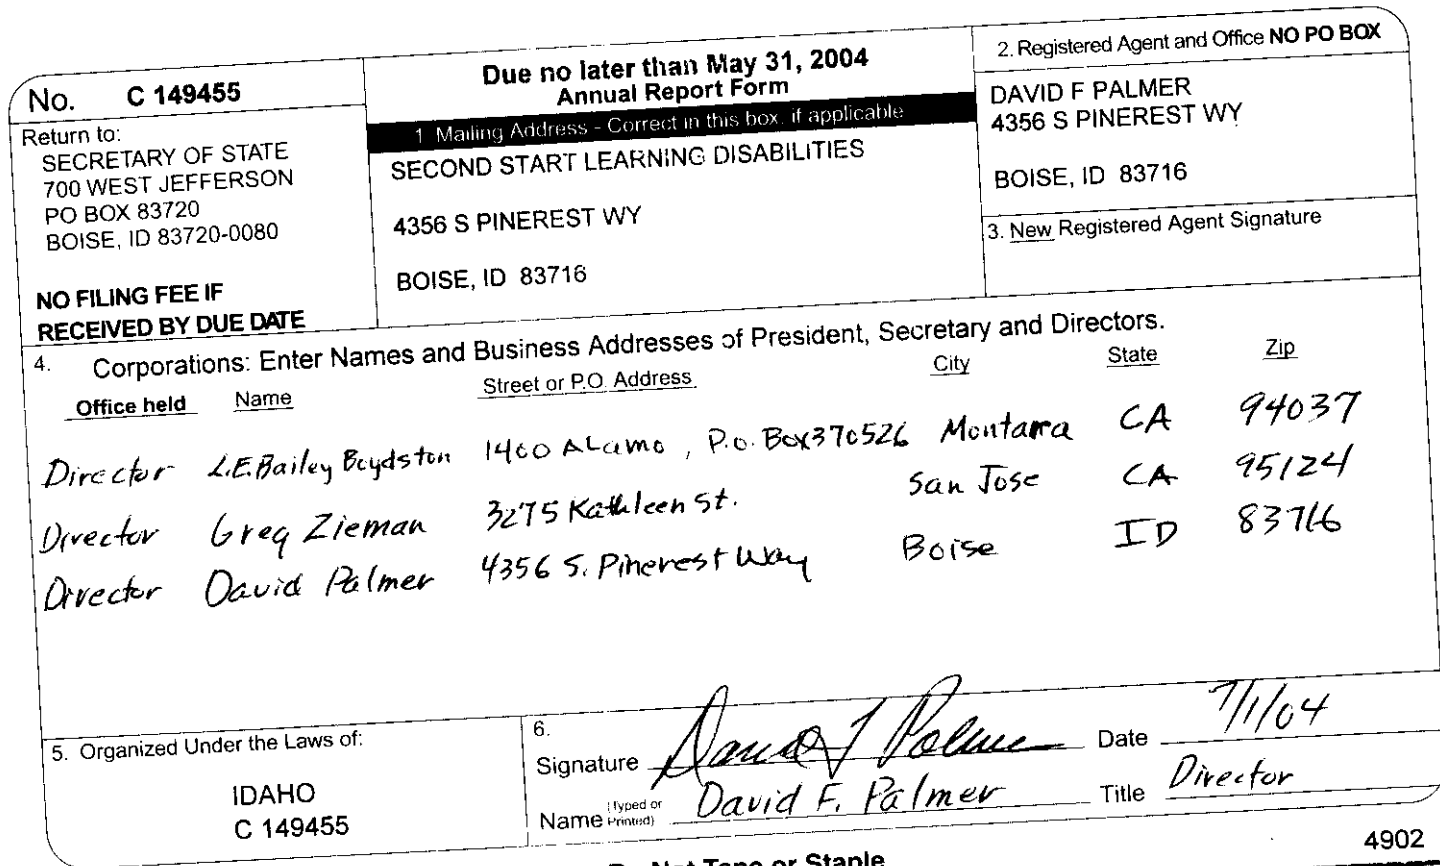 No. C 149455
Return to:
SECRETARY OF STATE
700 WEST JEFFERSON
PO BOX 83720
BOISE, ID 83720-0080
NO FILING FEE IF
RECEIVED BY DUE DATE
Due no later than May 31, 2004
Annual Report Form
1 Mailing Address - Correct in this box, if applicable
SECOND START LEARNING DISABILITIES
4356 S PINEREST WY
BOISE, ID 83716
2. Registered Agent and Office NO PO BOX
DAVID F PALMER
4356 S PINEREST WY
BOISE, ID 83716
3. New Registered Agent Signature
4. Corporations: Enter Names and Business Addresses of President, Secretary and Directors.
Office held Name Street or P.O. Address City State Zip
Director L.E. Bailey Boydston 1400 Alamo, P.O. Box 370526 Montara CA 94037
Director Greg Zieman 3275 Kathleen St. San Jose CA 95124
Director David Palmer 4356 S. Pinerest Way Boise ID 83716
5. Organized Under the Laws of:
IDAHO
C 149455
6.
Signature David F Palmer Date 7/1/04
Name (Typed or Printed) David F. Palmer Title Director
Do Not Tape or Staple
4902